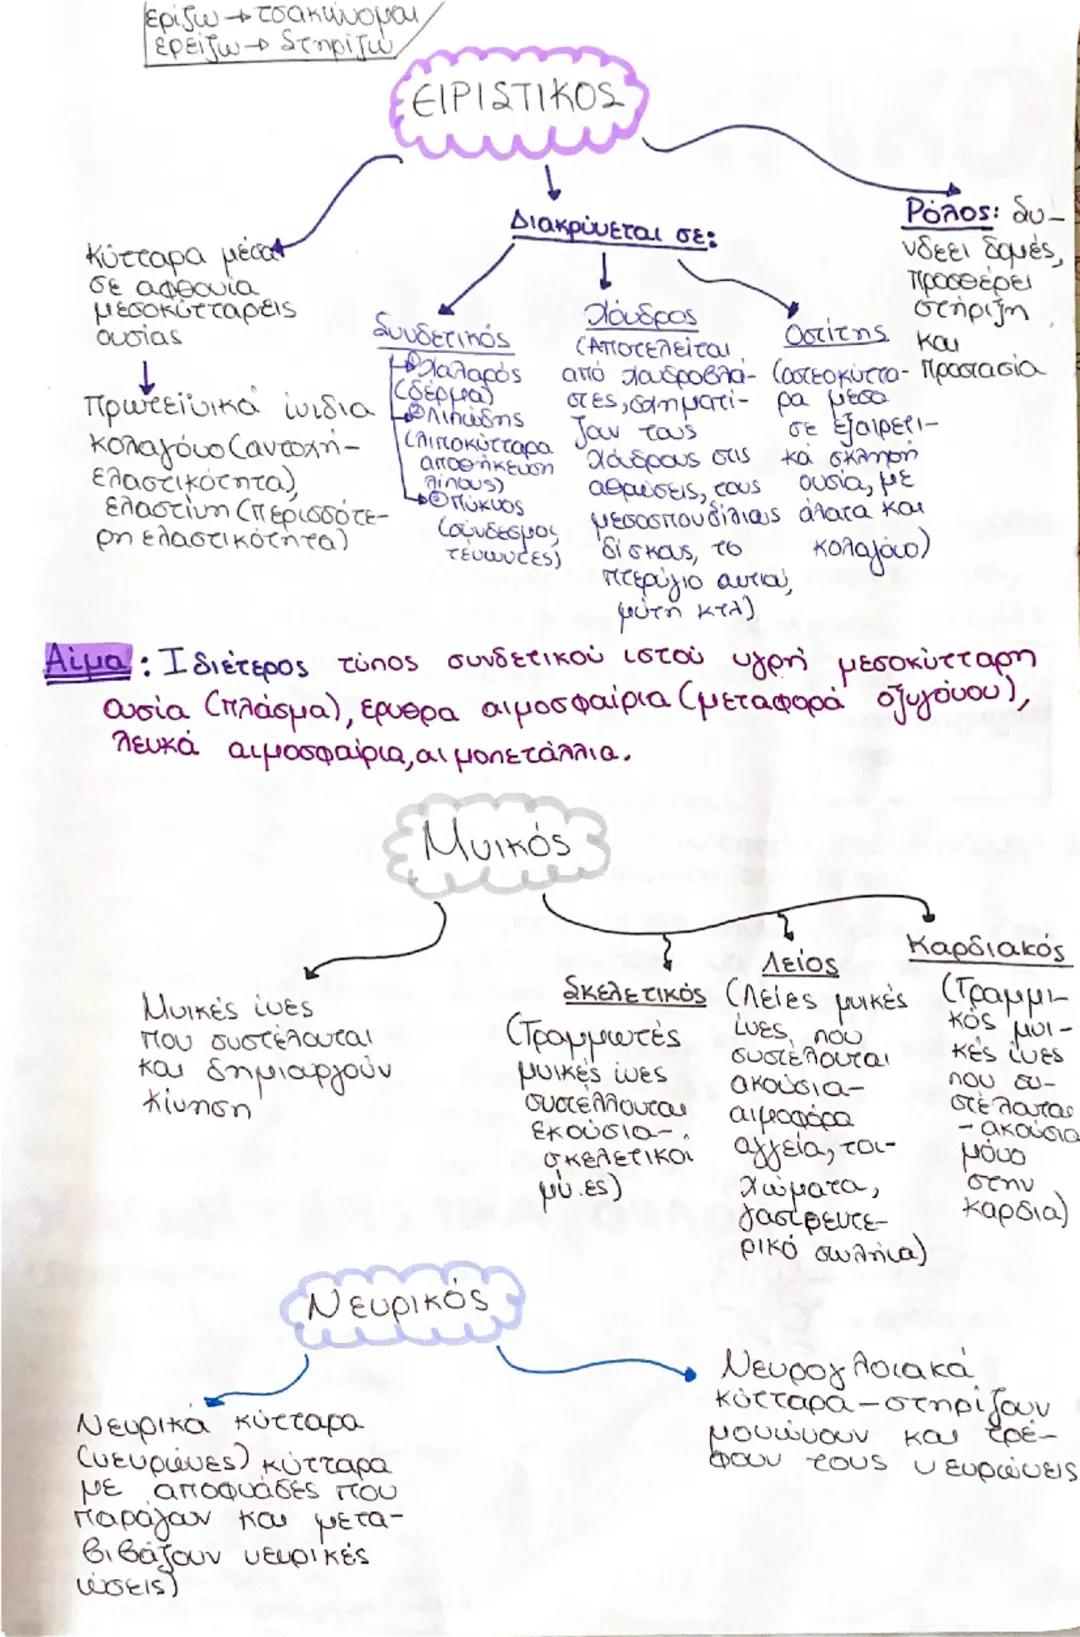 ερίζω → τσακώνομαι
ερείζω → Στηρίζω
ΕΙΡΙΣΤΙΚΟΣ
Κύτταρα μέσα
σε αφθονία
μεσοκύτταρεις
ουσίας
Πρωτεϊνικά ινιδια
κολαγόνο (αντοχή-
ελαστικότητα),
ελαστίνη (περισσότε-
ρη ελαστικότητα)
Διακρίνεται σε:
Συνδετικός
①Χαλαρός
(δέρμα)
②Λιπώδης
(λιποκύτταρα
αποθήκευση
λίπους)
③Πύκνος
(σύνδεσμος,
τένωντες)
Χόνδρος
(Αποτελείται
από χονδροβλά-
στες, σχηματί-
ζουν τους
χόνδρους στις
αθρώσεις, τους
μεσοσπονδύλιους
δίσκους, το
πτερύγιο αυτιού,
μύτη κτλ)
Οστίτης
(οστεοκύττα-
ρα μέσα
σε εξαιρετι-
κά σκληρή
ουσία, με
άλατα και
κολαγόνο)
Ρόλος: Συ-
νδεει δομές,
προσθέρει
στήριξη
και
προστασία
Αίμα: Ιδιέτερος τύπος συνδετικού ιστού υγρή μεσοκύτταρη
ουσία (πλάσμα), ερυθρα αιμοσφαίρια (μεταφορά οξυγόνου),
λευκά αιμοσφαίρια, αιμοπετάλλια.
Μυικός
Μυικές ίνες
που συστέλονται
και δημιουργούν
κίνηση
Σκελετικός
(Τραμμωτές
μυικές ίνες
συστέλλονται
εκούσια-
σκελετικοι
μύ.ες)
Λείος
(Λείες μυικές
ίνες, που
συστέλονται
ακούσια-
αιμοφόρα
αγγεία, τοι-
χώματα,
γαστρεντε-
ρικό σωλήνα)
Καρδιακός
(Τραμμι-
κός μυι-
κές ίνες
που συ-
στέλονται
- ακούσια
μόνο
στην
καρδια)
Νευρικός
Νευρικά κύτταρα
(νευρώνες) κύτταρα
με αποφυάδες που
παράγουν και μετα-
βιβάζουν νευρικές
ώσεις)
Νευρογλοιακά
κύτταρα - στηρίζουν
μονώνουν και τρέ-
φουν τους νευρώνεις